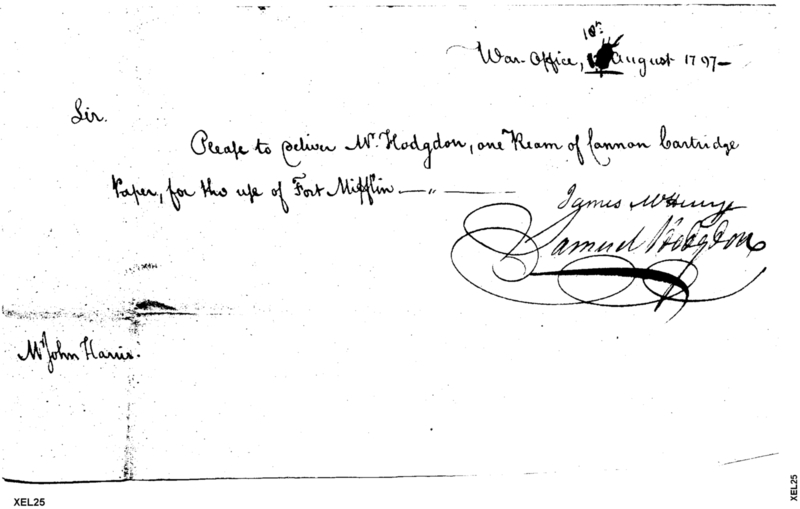 War Office, 10th August 1797—
Sir.
Please to deliver Mr. Hodgdon, one Ream of Cannon Cartridge
Paper, for the use of Fort Mifflin — „ —
James McHenry
Samuel Hodgdon
Mr John Harris.
XEL25
XEL25